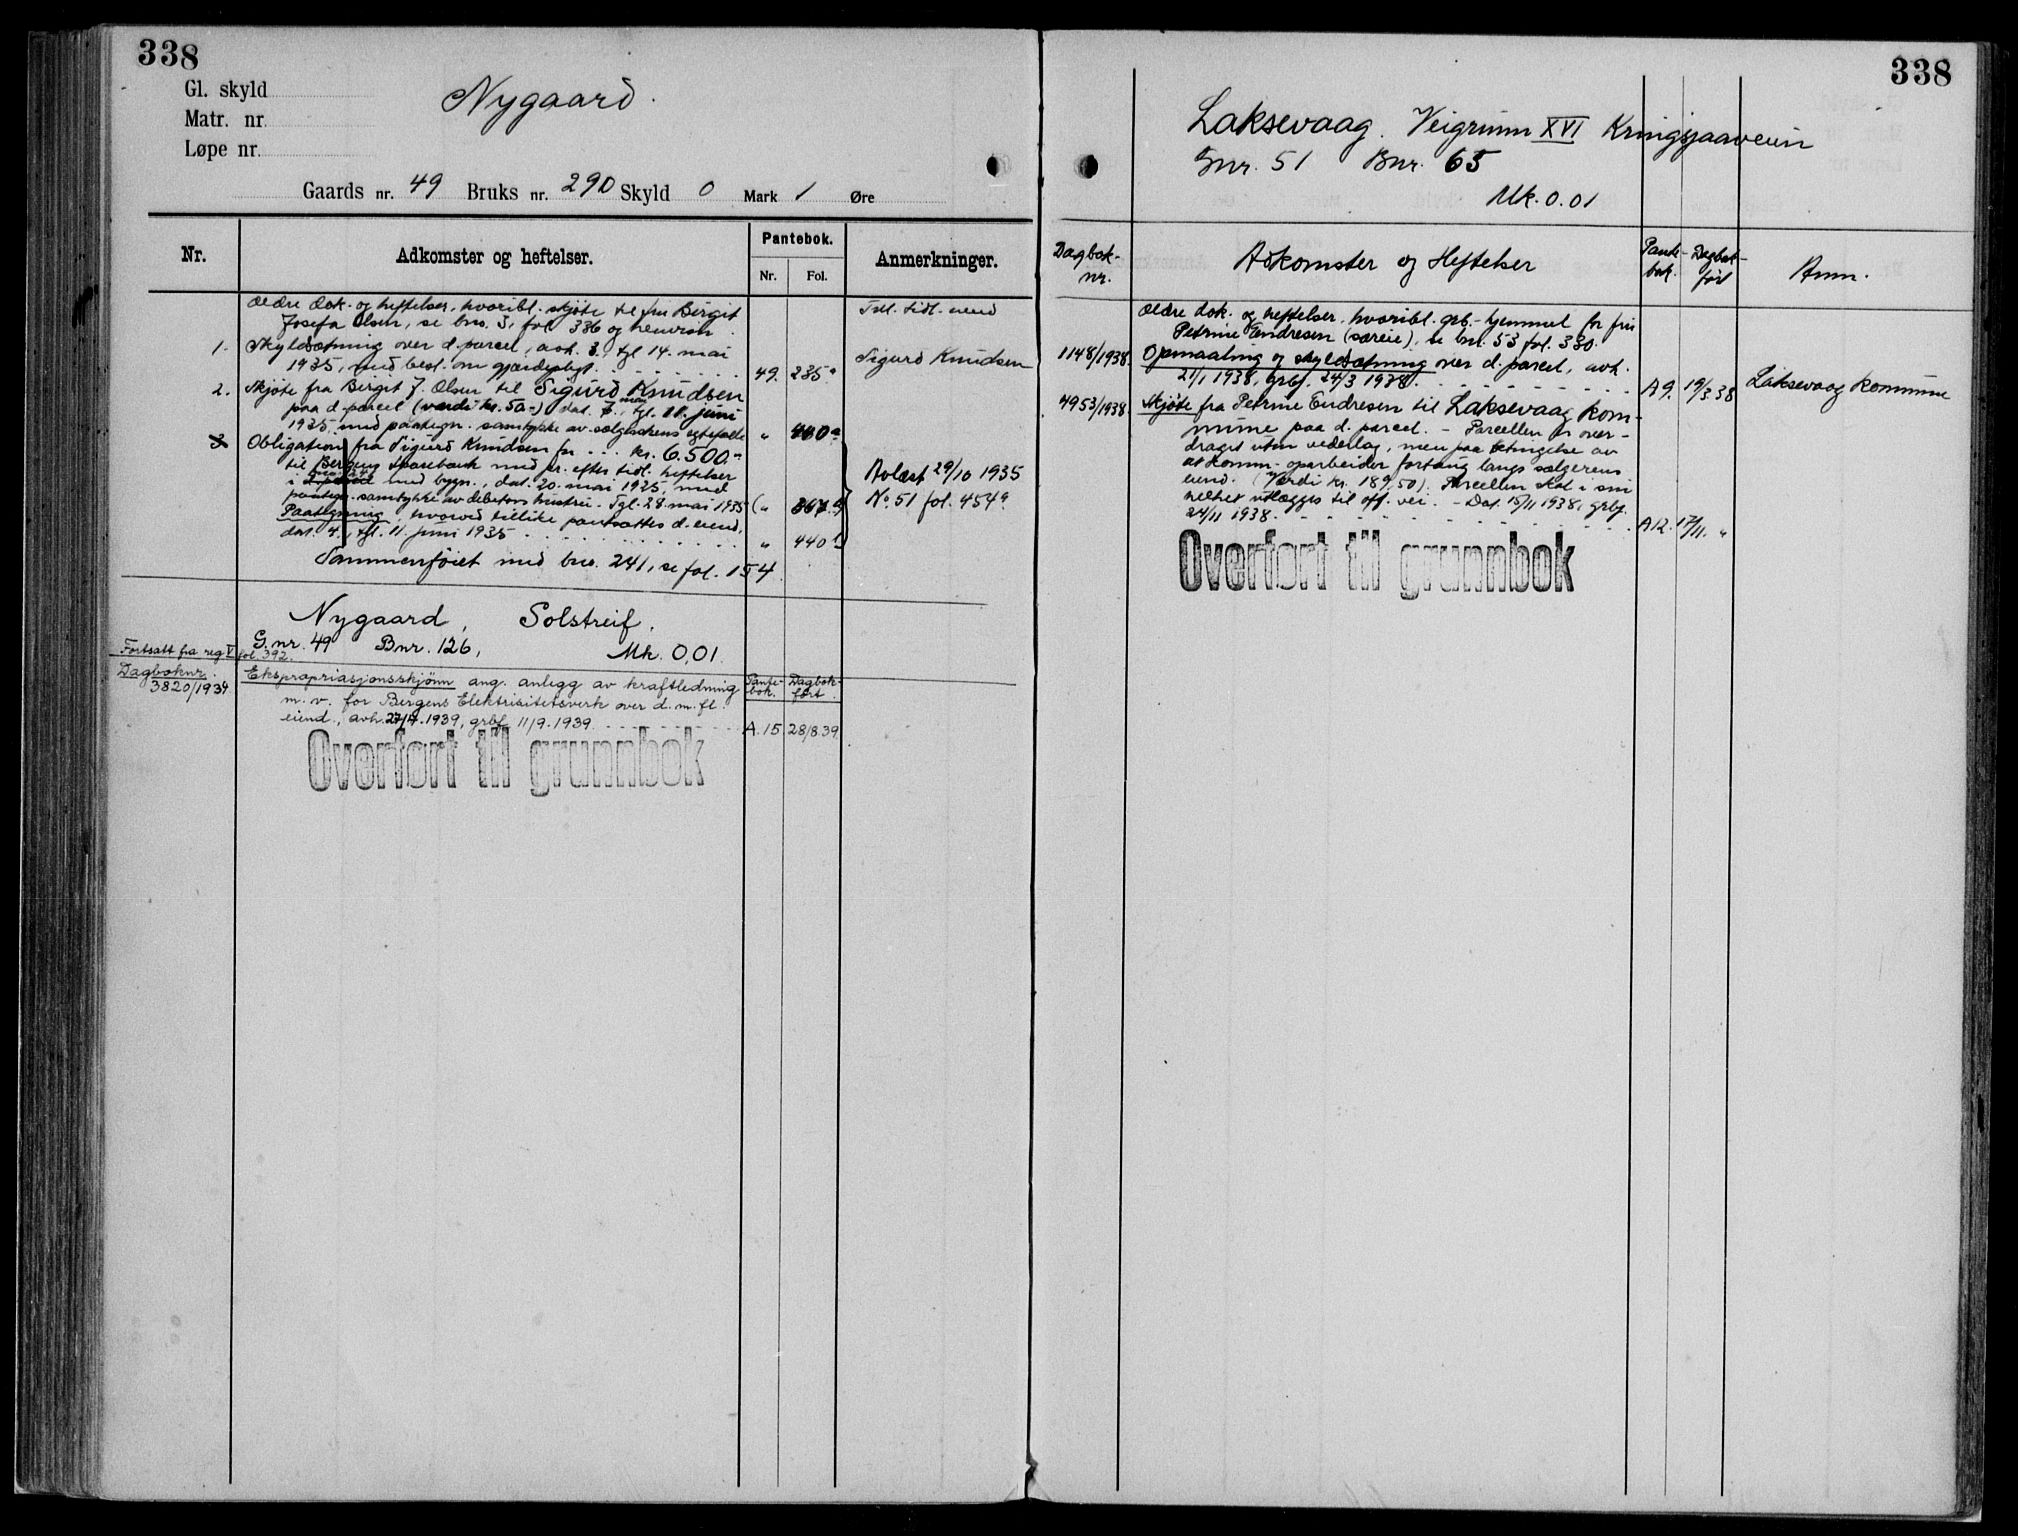 338
Gl. skyld
Matr. nr.
Løpe nr.
Nygaard.
Gaards nr. 49 Bruks nr. 290 Skyld 0 Mark 1 Øre
Nr.
Adkomster og heftelser.
Pantebok.
Nr. Fol.
Anmerkninger.
Ældre dok. og heftelser, hvoribl. skjøte til fru Birgit
Josefa Olsen, se bno. 3, fol. 336 og henvisn.
Till. tidl. eiend
1. Skyldsætning over d. parcel, avh. 3., tgl. 14. mai
1935, med best. om gjærdepligt. 49. 235a
Sigurd Knudsen
2. Skjøte fra Birgit J. Olsen til Sigurd Knudsen
paa d. parcel (værdi kr. 50.-) dat. 7. mai, tgl. 11. juni
1935 med paategn. samtykke av sælgerskens egtefælle " 440a
3. Obligation fra Sigurd Knudsen for ... kr. 6.500.-
til Bergens Sparebank med pr. efter tidl. heftelser
i d. parcel med bygn., dat. 20. mai 1935, med
paategn. samtykke av debitors hustru. Tgl. 28. mai 1935 (" 367
Paategning, hvorved tillike pantsættes d. eiend.
dat. 4., tgl. 11. juni 1935 " 440b
Avlæst 29/10 1935
No. 51 fol. 454a
Sammenføiet med bno. 241, se fol. 154.
Nygaard, Solstreif.
G.nr. 49 Bnr. 126, Mk. 0,01.
Fortsatt fra reg V fol. 392.
Dagboknr.
3820/1939
Ekspropriasjonsskjønn ang. anlegg av kraftledning
m. v. for Bergens Elektrisitetsverk over d. m. fl.
eiend., avh. 27/4. 1939, grbf. 11/9. 1939
Pante-
bok.
Dagbok-
ført.
A. 15. 28/8 39.
Overført til grunnbok
338
Laksevaag. Veigrunn XVI Kringsjaaveien
Gnr. 51 Bnr. 65
Mk. 0.01
Dagbok-
nr.
Adkomster og Heftelser
Pante-
bok.
Dagbok-
ført
Anm.
Ældre dok. og heftelser, hvoribl. grb.-hjemmel for fru
Petrine Endresen (særeie), se bnr. 53 fol. 330.
1148/1938. Opmaaling og skyldsætning over d. parcel, avh.
21/1 1938, grbf. 24/3 1938. A 9. 19/3 38
Laksevaag kommune
4953/1938. Skjøte fra Petrine Endresen til Laksevaag kom-
mune paa d. parcel. - Parcellen er over-
draget uten vederlag, men paa betingelse av
at komm. oparbeider fortaug langs sælgerens
eiend. (Verdi kr. 189,50). Parcellen skal i sin
helhet utlægges til off. vei. - Dat. 15/11 1938, grbf.
24/11 1938. A12. 17/11. "
Overført til grunnbok